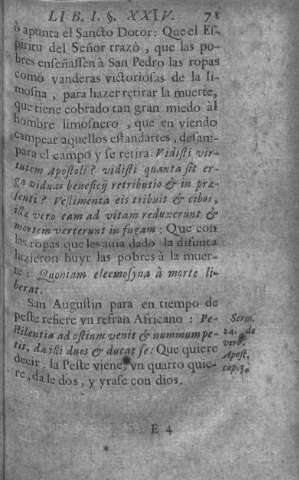 LIB. I. §. XXIV. 71
ò apunta el Sancto Dotor: Que el Es-
piritu del Señor trazò, que las po-
bres enseñassen à San Pedro las ropas
como vanderas victoriosas de la li-
mosna, para hazer retirar la muerte,
que tiene cobrado tan gran miedo al
hombre limosnero, que en viendo
campear aquellos estandartes, desam-
para el campo y se retira. Vidisti vir-
tutem Apostoli? vidisti quanta sit er-
ga viduas beneficij retributio & in præ-
senti? Vestimenta eis tribuit & cibos,
istæ vero eam ad vitam reduxerunt &
mortem verterunt in fugam: Que con
las ropas que les auia dado la difunta
hizieron huyr las pobres à la muer-
te: Quoniam eleemosyna à morte li-
berat.
San Augustin para en tiempo de
peste refiere vn refran Africano: Pe-
stilentia ad ostium venit & nummum pe-
tit, da illi duos & ducat se: Que quiere
decir, la Peste viene, vn quarto quie-
re, da le dos, y yrase con dios.
Serm.
24. de
verb.
Apost.
cap. 3.
E 4